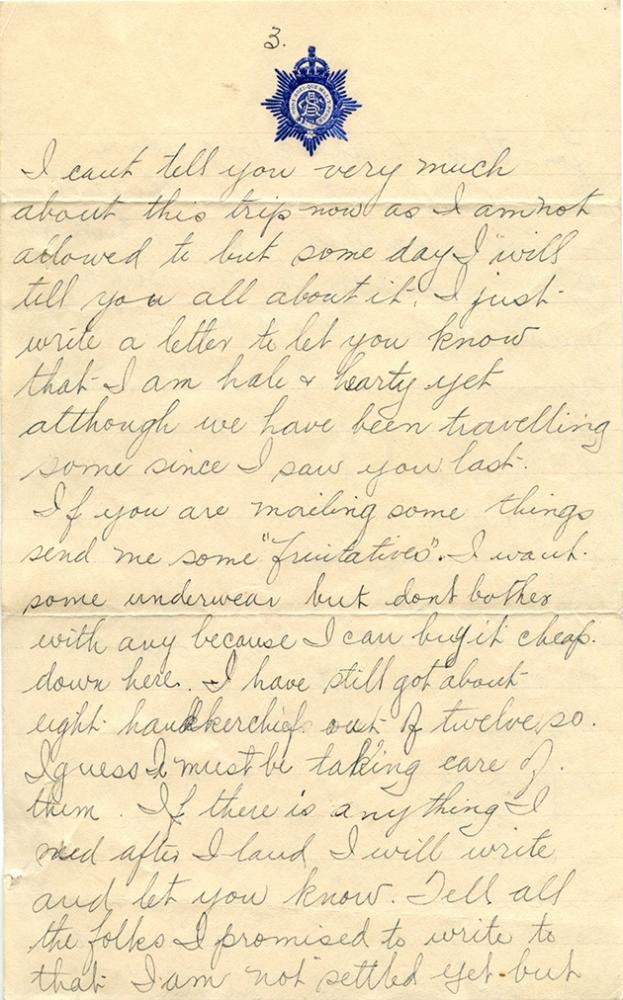 3.
I cant tell you very much
about this trip now as I am not
allowed to but some day I will
tell you all about it. I just
write a letter to let you know
that I am hale & hearty yet
although we have been travelling
some since I saw you last.
If you are mailing some things
send me some "fruitatives". I want
some underwear but dont bother
with any because I can buy it cheap
down here. I have still got about
eight handkerchiefs out of twelve so
I guess I must be taking care of
them. If there is anything I
need after I land I will write
and let you know. Tell all
the folks I promised to write to
that I am not settled yet but